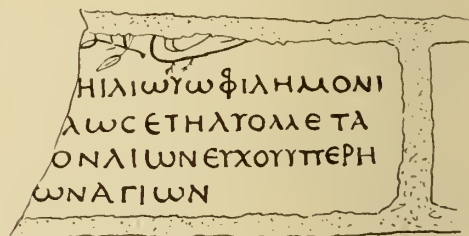 ΗΙΛΙΩΥΩΦΙΛΗΜΟΝΙ
ΛΩϹΕΤΗΛΥΟΛΛΕΤΑ
ΟΝΛΙΩΝΕΥΧΟΥΥΠΕΡΗ
ΩΝΑΓΙΩΝ